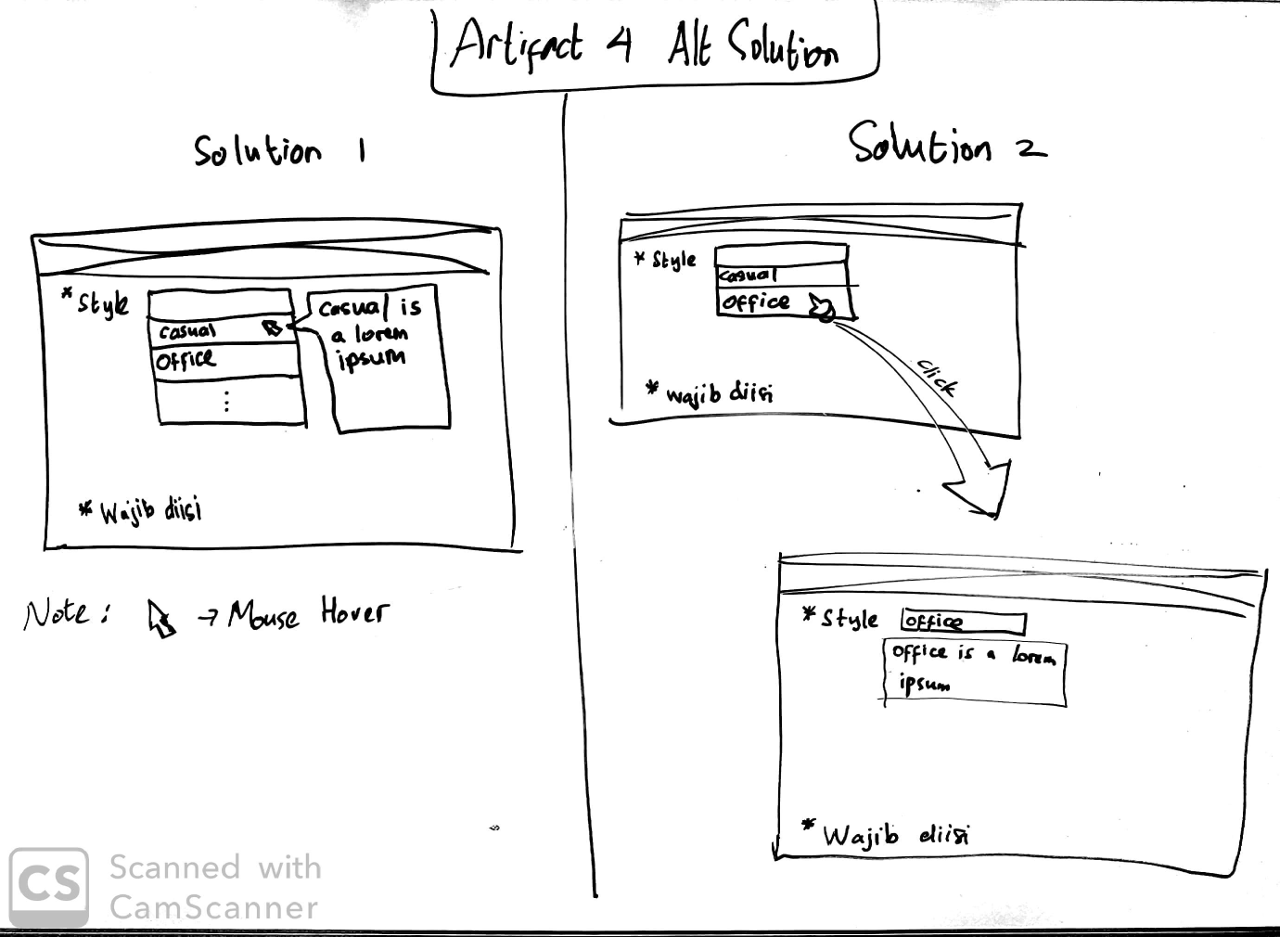 Artifact 4 Alt Solution
Solution 1
* Style
casual
office
⋮
casual is
a lorem
ipsum
* Wajib diisi
Note: → Mouse Hover
Solution 2
* Style
casual
office
click
* wajib diisi
* Style office
office is a lorem
ipsum
* Wajib diisi
CS Scanned with
CamScanner